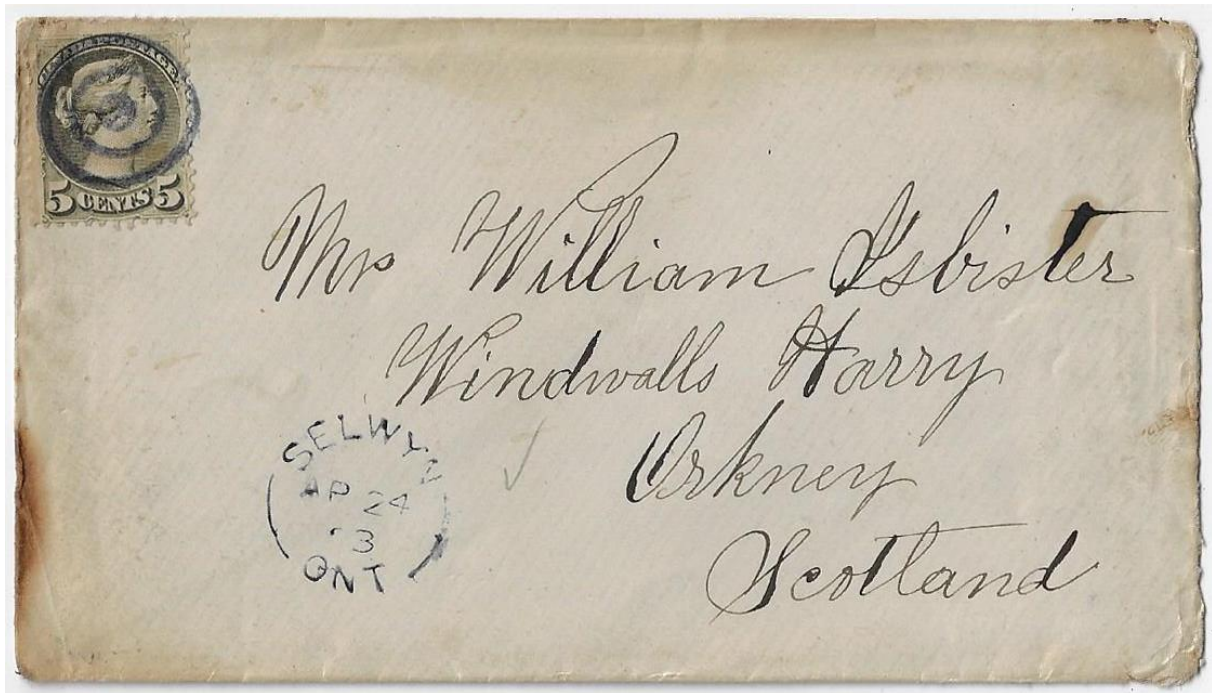 5 CENTS 5
Mr William Isbister
Windwalls Harry
Orkney
Scotland
SELWYN
AP 24
3
ONT